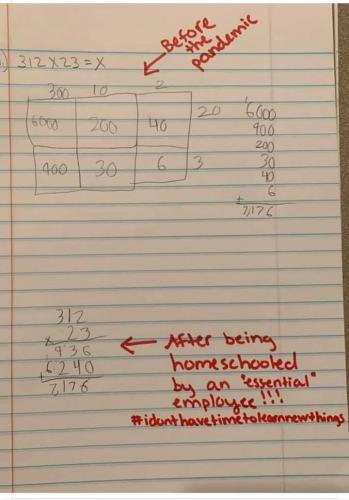 1) 312 x 23 = x
Before the pandemic
300 10 2
6000 200 40 20
900 30 6 3
1
6000
900
200
30
40
+ 6
7,176
312
x 23
936
+ 6240
7,176
After being
homeschooled
by an "essential"
employee!!!
#idonthavetimetolearnnewthings